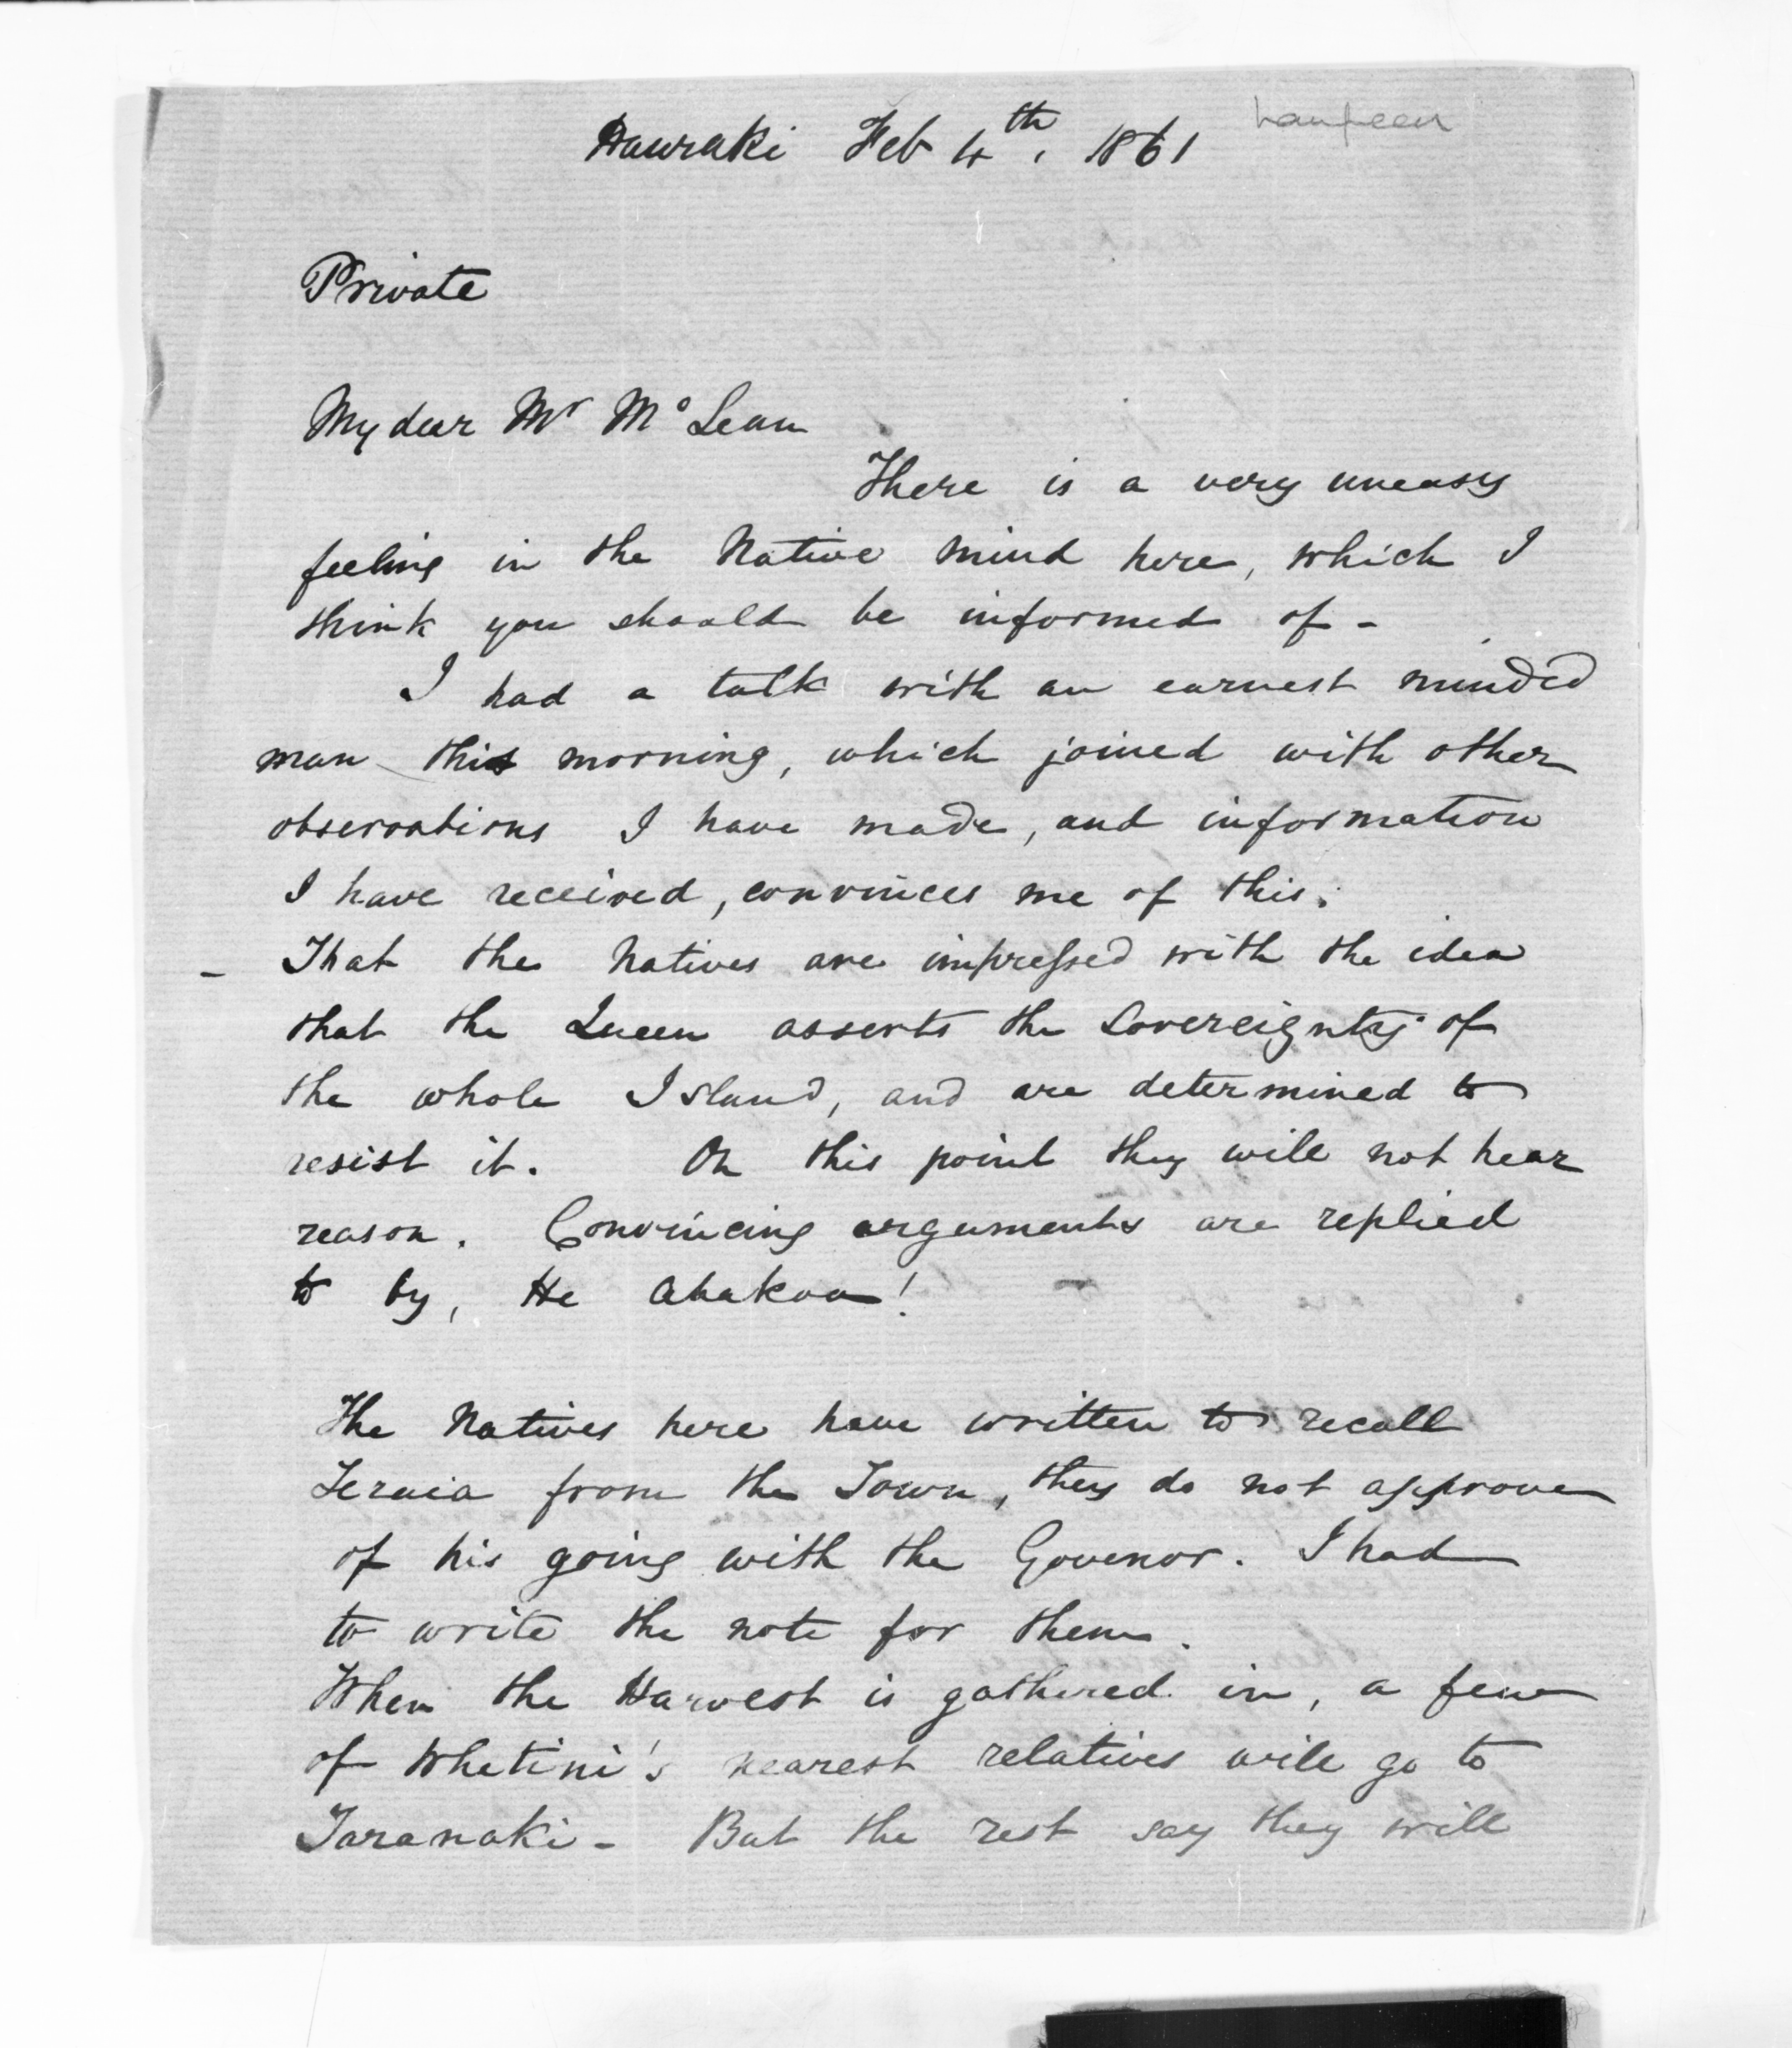 Hauraki Feb 4th, 1861
Private
My dear Mr McLean
There is a very uneasy
feeling in the Native mind here, which I
think you should be informed of -
I had a talk with an earnest minded
man this morning, which joined with other
observations I have made, and information
I have received, convinces me of this.
- That the Natives are impressed with the idea
that the Queen asserts the Sovereignty of
the whole Island, and are determined to
resist it. On this point they will not hear
reason. Convincing arguments are replied
to by, He ahakoa!
The Natives here have written to recall
Teraia from the Town, they do not approve
of his going with the Govenor. I had
to write the note for them.
When the Harvest is gathered in, a few
of Whetini's nearest relatives will go to
Taranaki - But the rest say they will